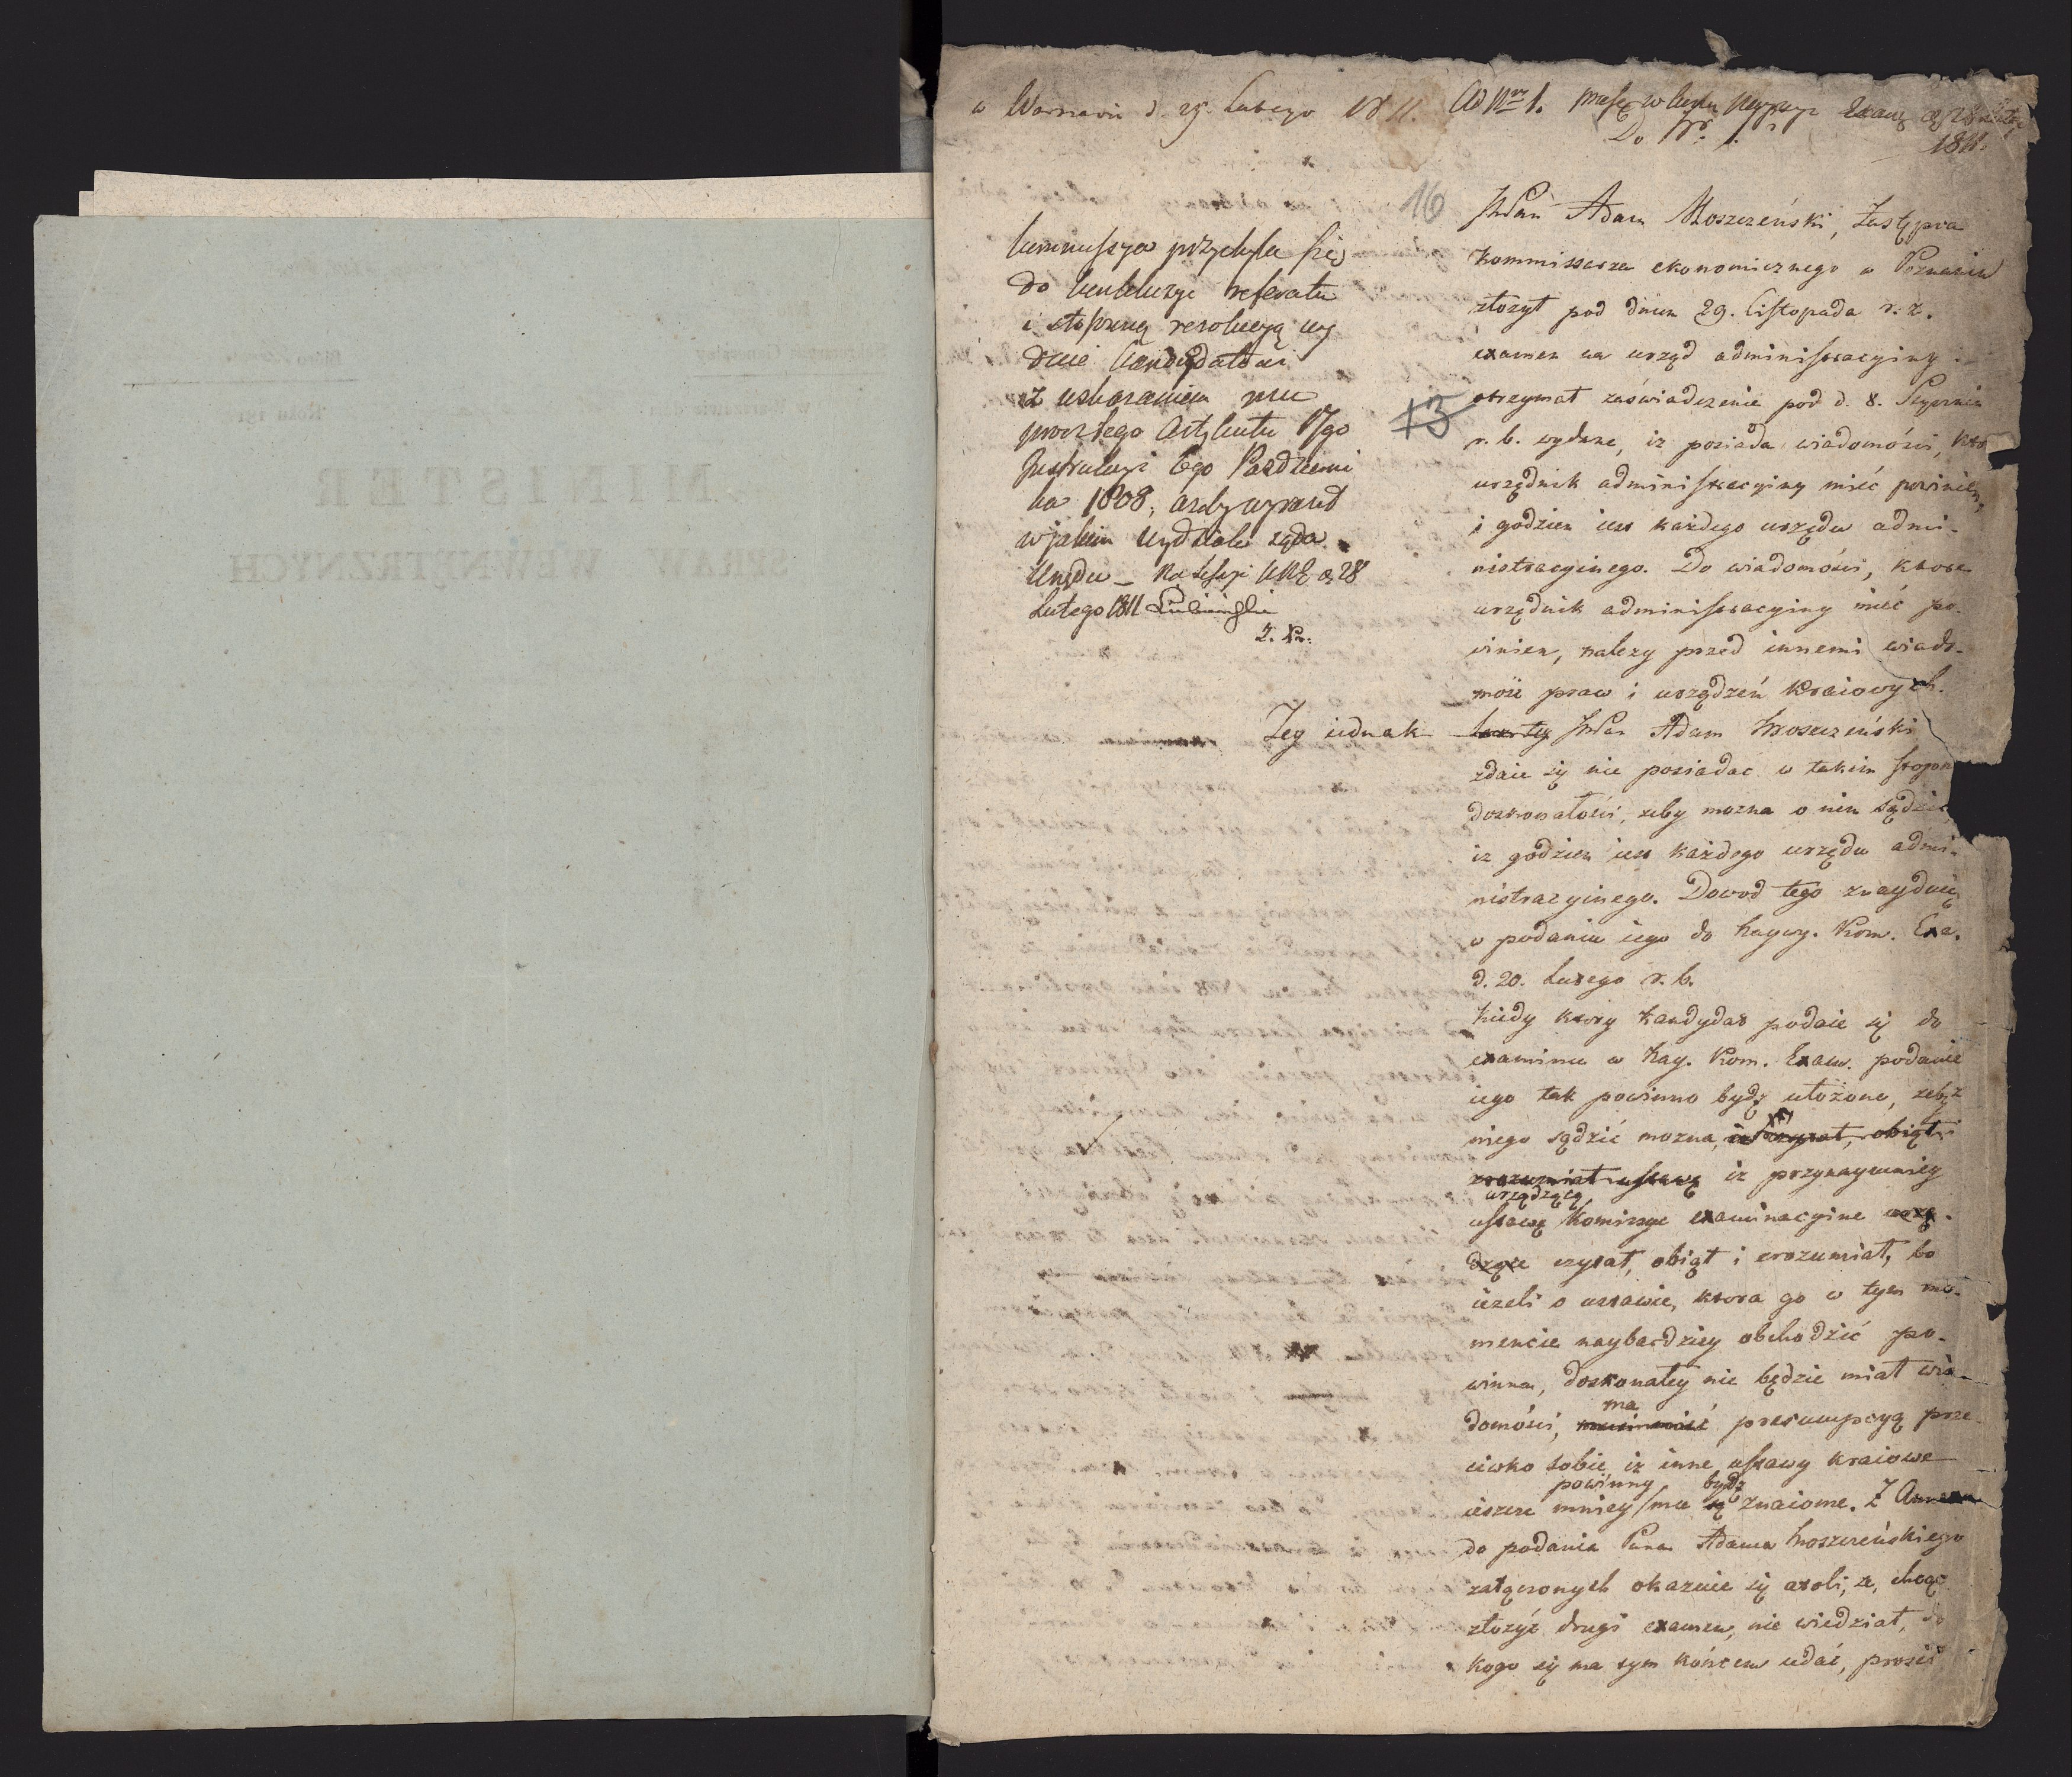 w Warszawie d. 25. Lutego 1811.
Ad Nr 1.
Do Nr. 1.
1811.
16
13
Kommissya przychyla się
do konkluzyi referatu
i stosowną rezolucyą wy
daie Kandydatowi
z wskazaniem mu
prostego Artykułu 17go
Instrukcyi 6go Październi
ka 1808, ażeby wyraził
w jakim wydziale żąda
Urzędu – Na Sessyi KNE d. 28
Lutego 1811 Lubieński
Z. Pr.
JPan Adam Moszczeński, Zastępca
Kommissarza ekonomicznego w Poznaniu
złożył pod dniem 29. Listopada r. z.
examen na urząd administracyiny i
otrzymał zaświadczenie pod d. 8. Stycznia
r. b. wydane, iż posiada wiadomości, które
urzędnik administracyiny mieć powinien,
i godzien iest każdego urzędu admi-
nistracyinego. Do wiadomości, które
urzędnik administracyiny mieć po-
winien, należy przed innemi wiado-
mość praw i urządzeń Kraiowych.
Tey iednak JPan Adam Moszczeński
zdaie się nie posiadać w takim stopniu
doskonałości, żeby można o nim sądzić,
iż godzien iest każdego urzędu admi-
nistracyinego. Dowod tego znayduię
w podaniu iego do Naywy. Kom. Exa.
d. 20. Lutego r. b.
Kiedy który Kandydat podaie się do
examinu w Nay. Kom. Exam. podanie
iego tak powinno bydź ułożone, żeby z
niego sądzić można, iż czytał, obiął i
zrozumiał ustawę iż przynaymniey
urządzącą
ustawę Komissye examinacyine urzą-
dzące czytał, obiął i zrozumiał, bo
ieżeli o ustawie, która go w tym mo-
mencie naybardziey obchodzić po-
winna, doskonałey nie będzie miał wia-
ma
domości, musi mieć presumpcyą prze-
ciwko sobie, iż inne ustawy kraiowe
powinny bydź
ieszcze mniey mu są znaiome. Z Annexu
do podania Pana Adama Moszczeńskiego
załączonych okazuie się atoli, że, chcąc
złożyć drugi examen, nie wiedział, do
kogo się na tym końcem udać, prosił
MINISTER
SPRAW WEWNĘTRZNYCH